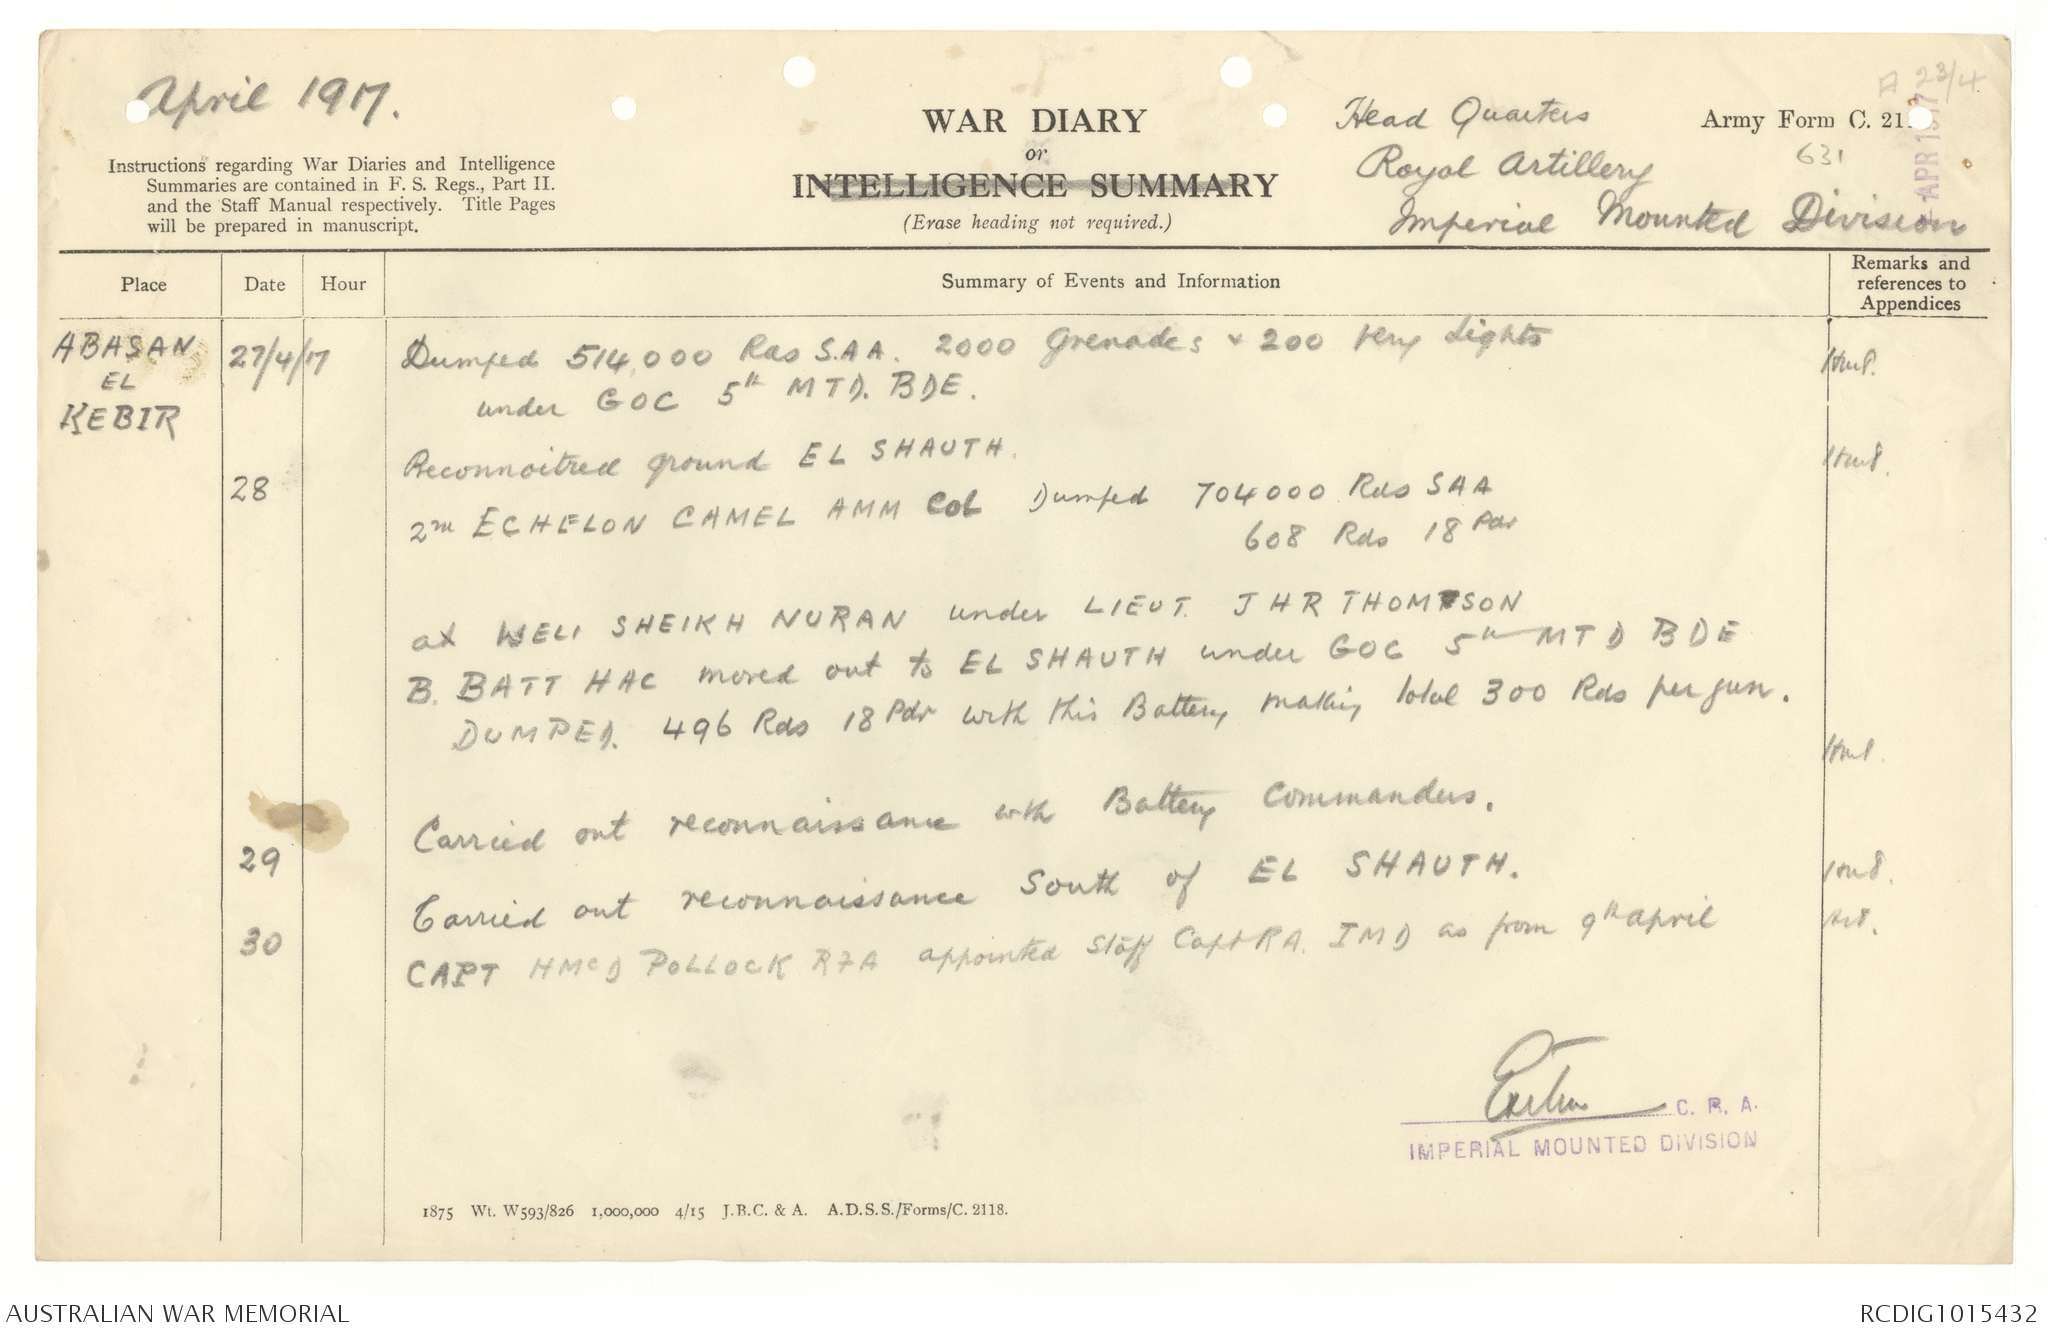 April 1917.
Instructions regarding War Diaries and Intelligence
Summaries are contained in F. S. Regs., Part II.
and the Staff Manual respectively. Title Pages
will be prepared in manuscript.
WAR DIARY
or
INTELLIGENCE SUMMARY
(Erase heading not required.)
Head Quarters
Royal Artillery
Imperial Mounted Division
23/4
Army Form C. 21
631
APR 1917
Place Date Hour Summary of Events and Information Remarks and references to Appendices
ABASAN EL KEBIR 27/4/17 Dumped 514,000 Rds S.A.A. 2000 Grenades + 200 Very Lights
under GOC 5th MTD. BDE.
28 Reconnoitred ground EL SHAUTH.
2nd ECHELON CAMEL AMM COL Dumped 704000 Rds SAA
608 Rds 18 Pdr
at WELI SHEIKH NURAN under LIEUT. J H R THOMPSON
B. BATT HAC moved out to EL SHAUTH under GOC 5th MTD BDE
DUMPED. 496 Rds 18 Pdr with this Battery making total 300 Rds per gun.
Carried out reconnaissance with Battery Commanders.
29 Carried out reconnaissance South of EL SHAUTH.
30 CAPT HMcD POLLOCK RFA appointed Staff Capt RA. IMD as from 9th April
C. R. A.
IMPERIAL MOUNTED DIVISION
1875 Wt. W593/826 1,000,000 4/15 J.B.C. & A. A.D.S.S./Forms/C. 2118.
AUSTRALIAN WAR MEMORIAL
RCDIG1015432